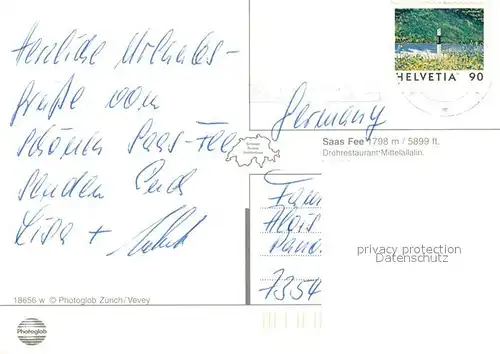 Herzliche Urlaubs-
grüße vom
schönen Saas-Fee
senden Euch
Lisa +
HELVETIA 90
Germany
Saas Fee 1798 m / 5899 ft.
Drehrestaurant Mittelallalin.
Fam
Alois
Pano
7354
privacy protection
Datenschutz
18656 w © Photoglob Zürich/Vevey
Photoglob